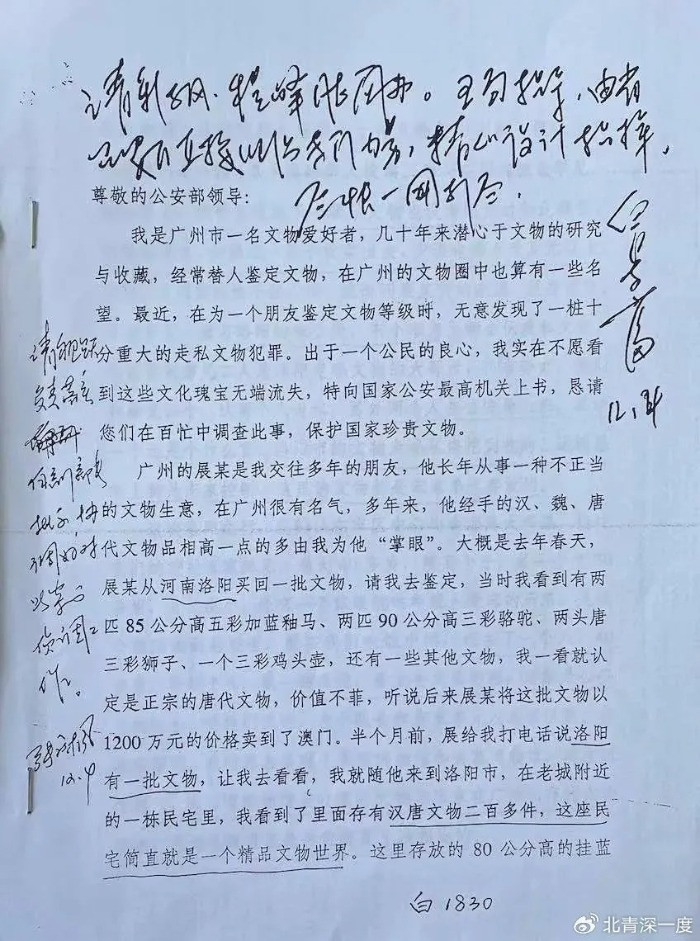 尊敬的公安部领导：
我是广州市一名文物爱好者，几十年来潜心于文物的研究
与收藏，经常替人鉴定文物，在广州的文物圈中也算有一些名
望。最近，在为一个朋友鉴定文物等级时，无意发现了一桩十
分重大的走私文物犯罪。出于一个公民的良心，我实在不愿看
到这些文化瑰宝无端流失，特向国家公安最高机关上书，恳请
您们在百忙中调查此事，保护国家珍贵文物。
广州的展某是我交往多年的朋友，他长年从事一种不正当
的文物生意，在广州很有名气，多年来，他经手的汉、魏、唐
代文物品相高一点的多由我为他“掌眼”。大概是去年春天，
展某从河南洛阳买回一批文物，请我去鉴定，当时我看到有两
匹85公分高五彩加蓝釉马、两匹90公分高三彩骆驼、两头唐
三彩狮子、一个三彩鸡头壶，还有一些其他文物，我一看就认
定是正宗的唐代文物，价值不菲，听说后来展某将这批文物以
1200万元的价格卖到了澳门。半个月前，展给我打电话说洛阳
有一批文物，让我去看看，我就随他来到洛阳市，在老城附近
的一栋民宅里，我看到了里面存有汉唐文物二百多件，这座民
宅简直就是一个精品文物世界。这里存放的80公分高的挂蓝
12.4
白1830
@北青深一度